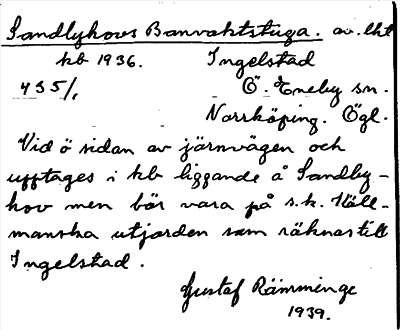 Sandlyhovs Banvaktstuga. av. lht
kb 1936. Ingelstad
435/1 Ö. Eneby sn.
Norrköping. Ögl.
Vid ö sidan av järnvägen och
upptages i kb liggande å Sandby-
hov men bör vara på s.k. Käll-
manska utjorden som räknas till
Ingelstad.
Gustaf Rämminge
1939.